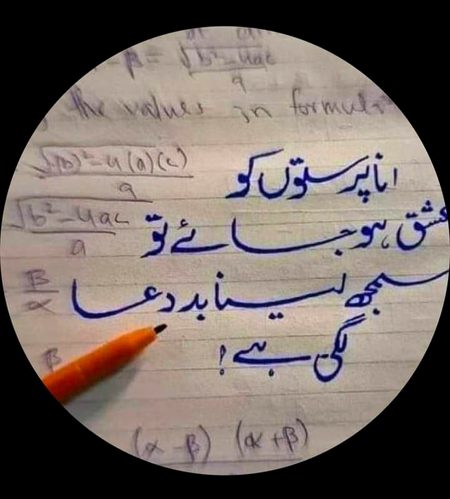 β = √b²-4ac / a
the values in formul
√(b)²-4(a)(c) / a
√b²-4ac / a
β / α
β
انا پرستوں کو
عشق ہو جائے تو
سمجھ لینا بددعا
لگی ہے !
(α - β) (α + β)